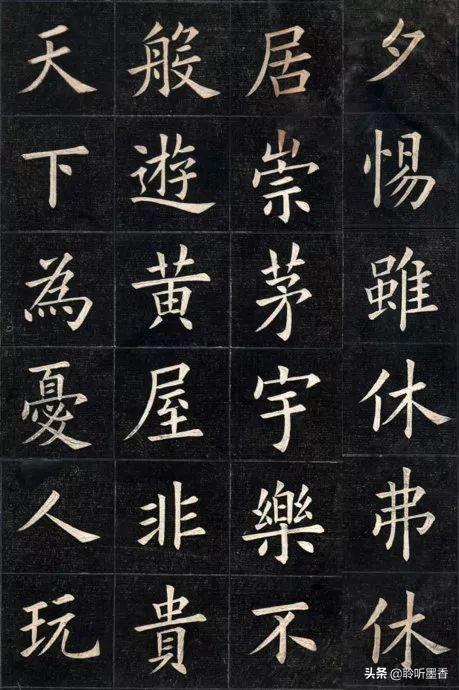 夕惕雖休弗休
居崇茅宇樂不
般遊黃屋非貴
天下為憂人玩
头条 @聆听墨香